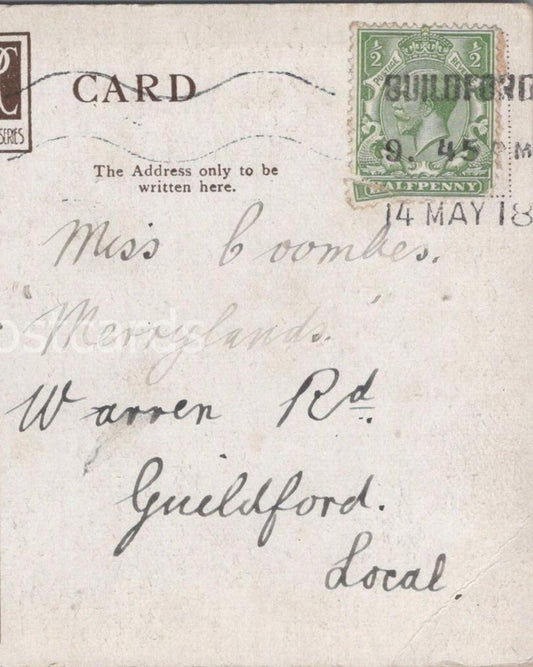 SERIES
CARD
The Address only to be
written here.
1/2 1/2
POSTAGE REVENUE
HALFPENNY
GUILDFORD
9. 45 PM
14 MAY 18
Miss Coombes.
Merrylands.
Warren Rd
Guildford.
Local.
postcards